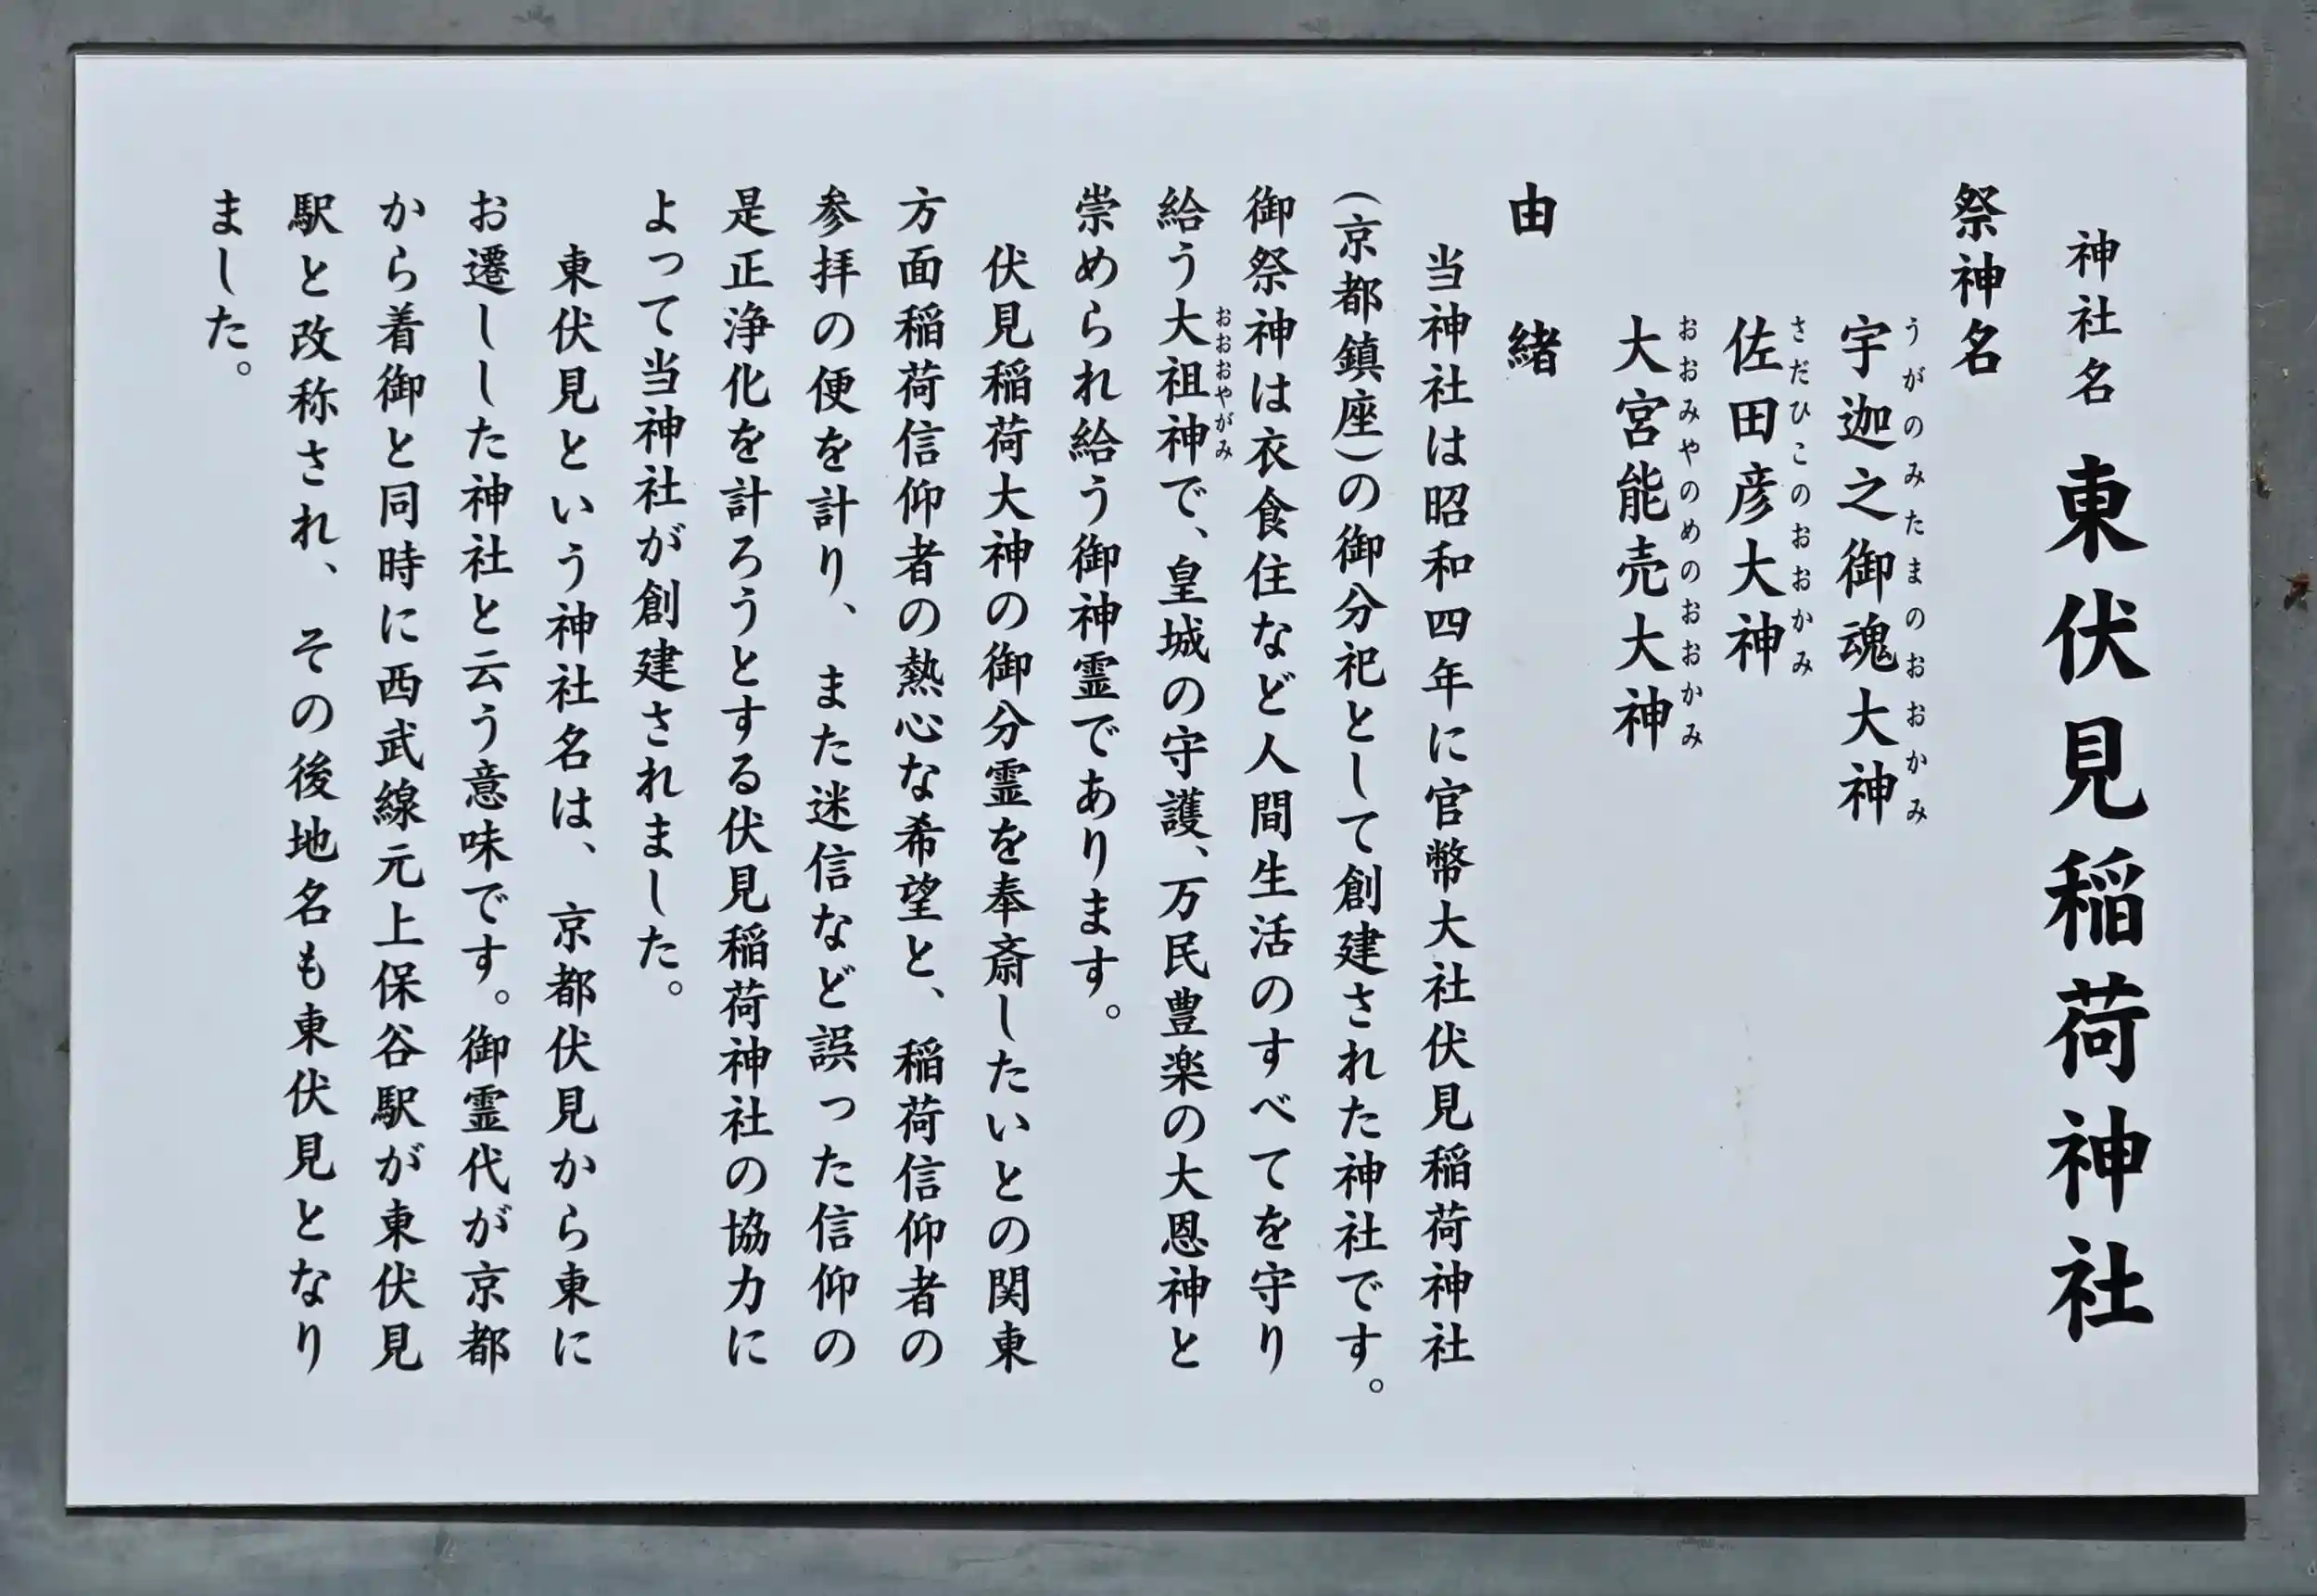 神社名 東伏見稲荷神社
祭神名
宇迦之御魂大神
うがのみたまのおおかみ
佐田彦大神
さだひこのおおかみ
大宮能売大神
おおみやのめのおおかみ
由緒
当神社は昭和四年に官幣大社伏見稲荷神社
(京都鎮座)の御分祀として創建された神社です。
御祭神は衣食住など人間生活のすべてを守り
給う大祖神で、皇城の守護、万民豊楽の大恩神と
おおおやがみ
崇められ給う御神霊であります。
伏見稲荷大神の御分霊を奉斎したいとの関東
方面稲荷信仰者の熱心な希望と、稲荷信仰者の
参拝の便を計り、また迷信など誤った信仰の
是正浄化を計ろうとする伏見稲荷神社の協力に
よって当神社が創建されました。
東伏見という神社名は、京都伏見から東に
お遷しした神社と云う意味です。御霊代が京都
から着御と同時に西武線元上保谷駅が東伏見
駅と改称され、その後地名も東伏見となり
ました。